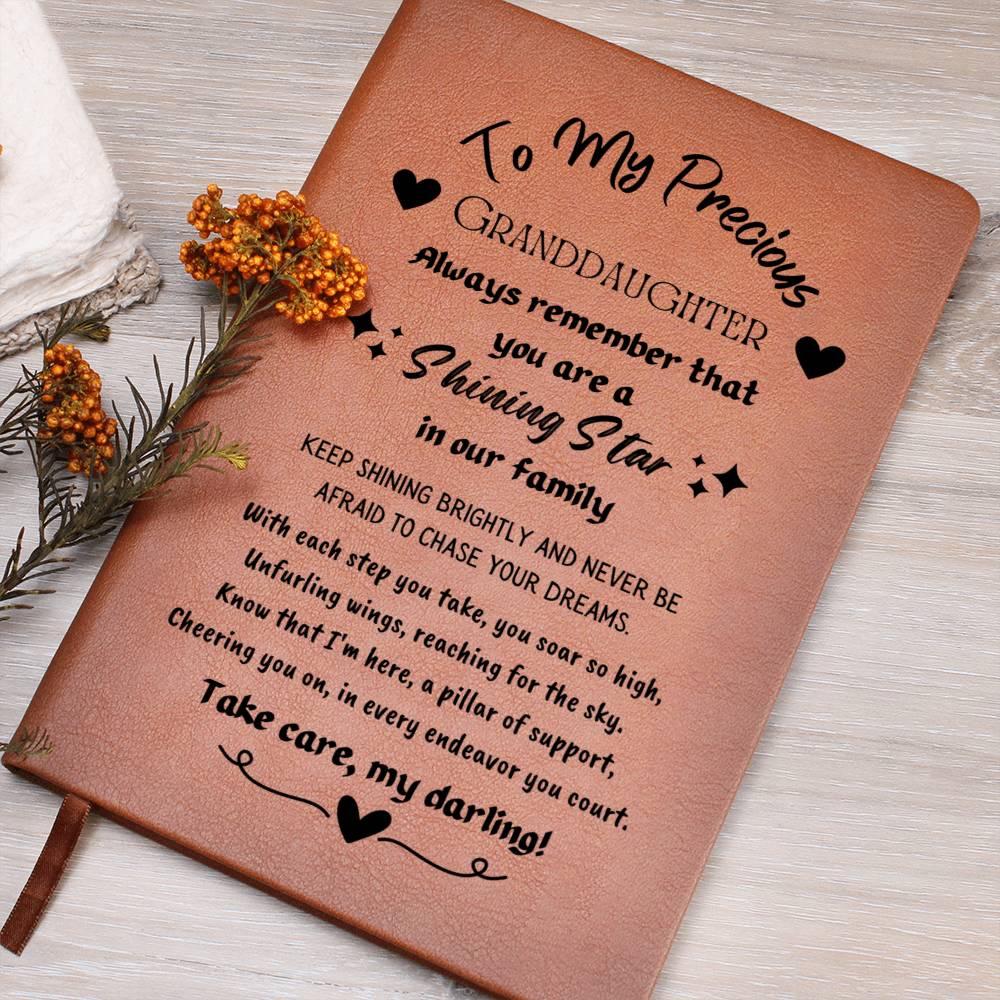 To My Precious
GRANDDAUGHTER
Always remember that
you are a
Shining Star
in our family
KEEP SHINING BRIGHTLY AND NEVER BE
AFRAID TO CHASE YOUR DREAMS.
With each step you take, you soar so high,
Unfurling wings, reaching for the sky.
Know that I'm here, a pillar of support,
Cheering you on, in every endeavor you court.
Take care, my darling!